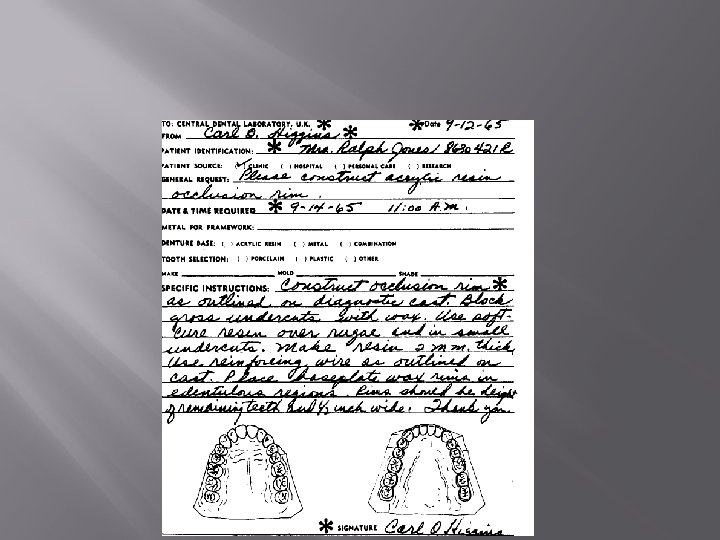 TO: CENTRAL DENTAL LABORATORY, U.K. * *Date 9-12-65
FROM Carl O. Higgins *
PATIENT IDENTIFICATION: * Mrs. Ralph Jones / 8630421R
PATIENT SOURCE: (✓) CLINIC ( ) HOSPITAL ( ) PERSONAL CARE ( ) RESEARCH
GENERAL REQUEST: Please construct acrylic resin
occlusion rim.
DATE & TIME REQUIRED * 9-14-65 11:00 A.M.
METAL FOR FRAMEWORK:
DENTURE BASE: ( ) ACRYLIC RESIN ( ) METAL ( ) COMBINATION
TOOTH SELECTION: ( ) PORCELAIN ( ) PLASTIC ( ) OTHER
MAKE MOLD SHADE
SPECIFIC INSTRUCTIONS: Construct occlusion rim *
as outlined on diagnostic cast. Block
gross undercuts with wax. Use soft-
cure resin over rugae and in small
undercuts. Make resin 2 mm. thick.
Use reinforcing wire as outlined on
cast. Place baseplate wax rims in
edentulous regions. Rims should be height
of remaining teeth and 1/2 inch wide. Thank you.
* SIGNATURE Carl O. Higgins